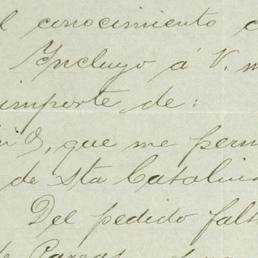 l conocimiento c
Incluyo á V. m
importe de:
S, que me perm
de Sta Catalin
Del pedido falt